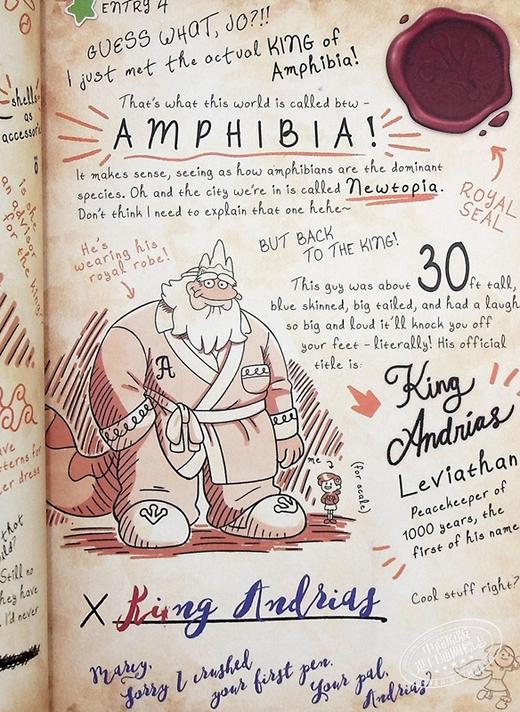 ENTRY 4
GUESS WHAT, JO?!!
I just met the actual KING of
Amphibia!
That's what this world is called btw -
AMPHIBIA!
It makes sense, seeing as how amphibians are the dominant
species. Oh and the city we're in is called Newtopia.
Don't think I need to explain that one hehe~
ROYAL
SEAL
He's
wearing his
royal robe!
BUT BACK
TO THE KING!
This guy was about 30ft tall,
blue skinned, big tailed, and had a laugh
so big and loud it'll knock you off
your feet - literally! His official
title is:
King
Andrias
Leviathan
Peacekeeper of
1000 years, the
first of his name
A
me
(for scale)
Cool stuff right?
X King Andrias
Marcy,
Sorry I crushed
your first pen.
Your pal,
Andrias
shells
as
accessori
is she
an advisor
for the king?
ave
tterns for
er dress
that
Still no
they have
I'd never